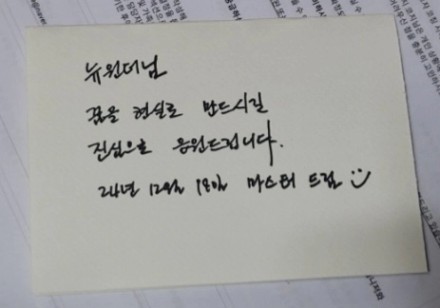 뉴원더님
꿈을 현실로 만드시길
진심으로 응원드립니다.
24년 12월 18일 마스터 드림